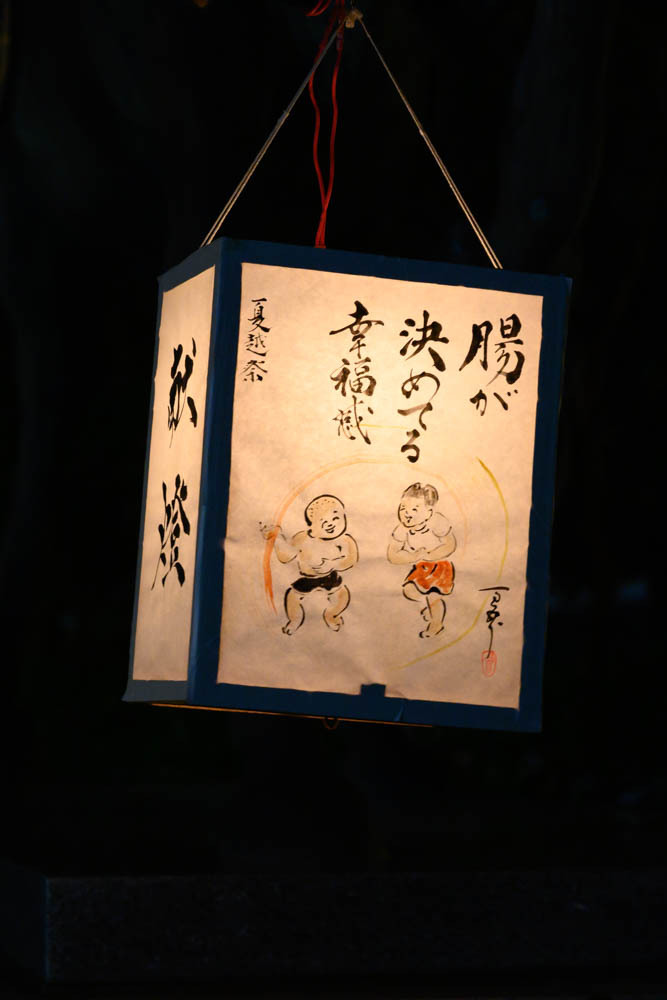 腸が
決めてる
幸福感
夏越祭
献燈